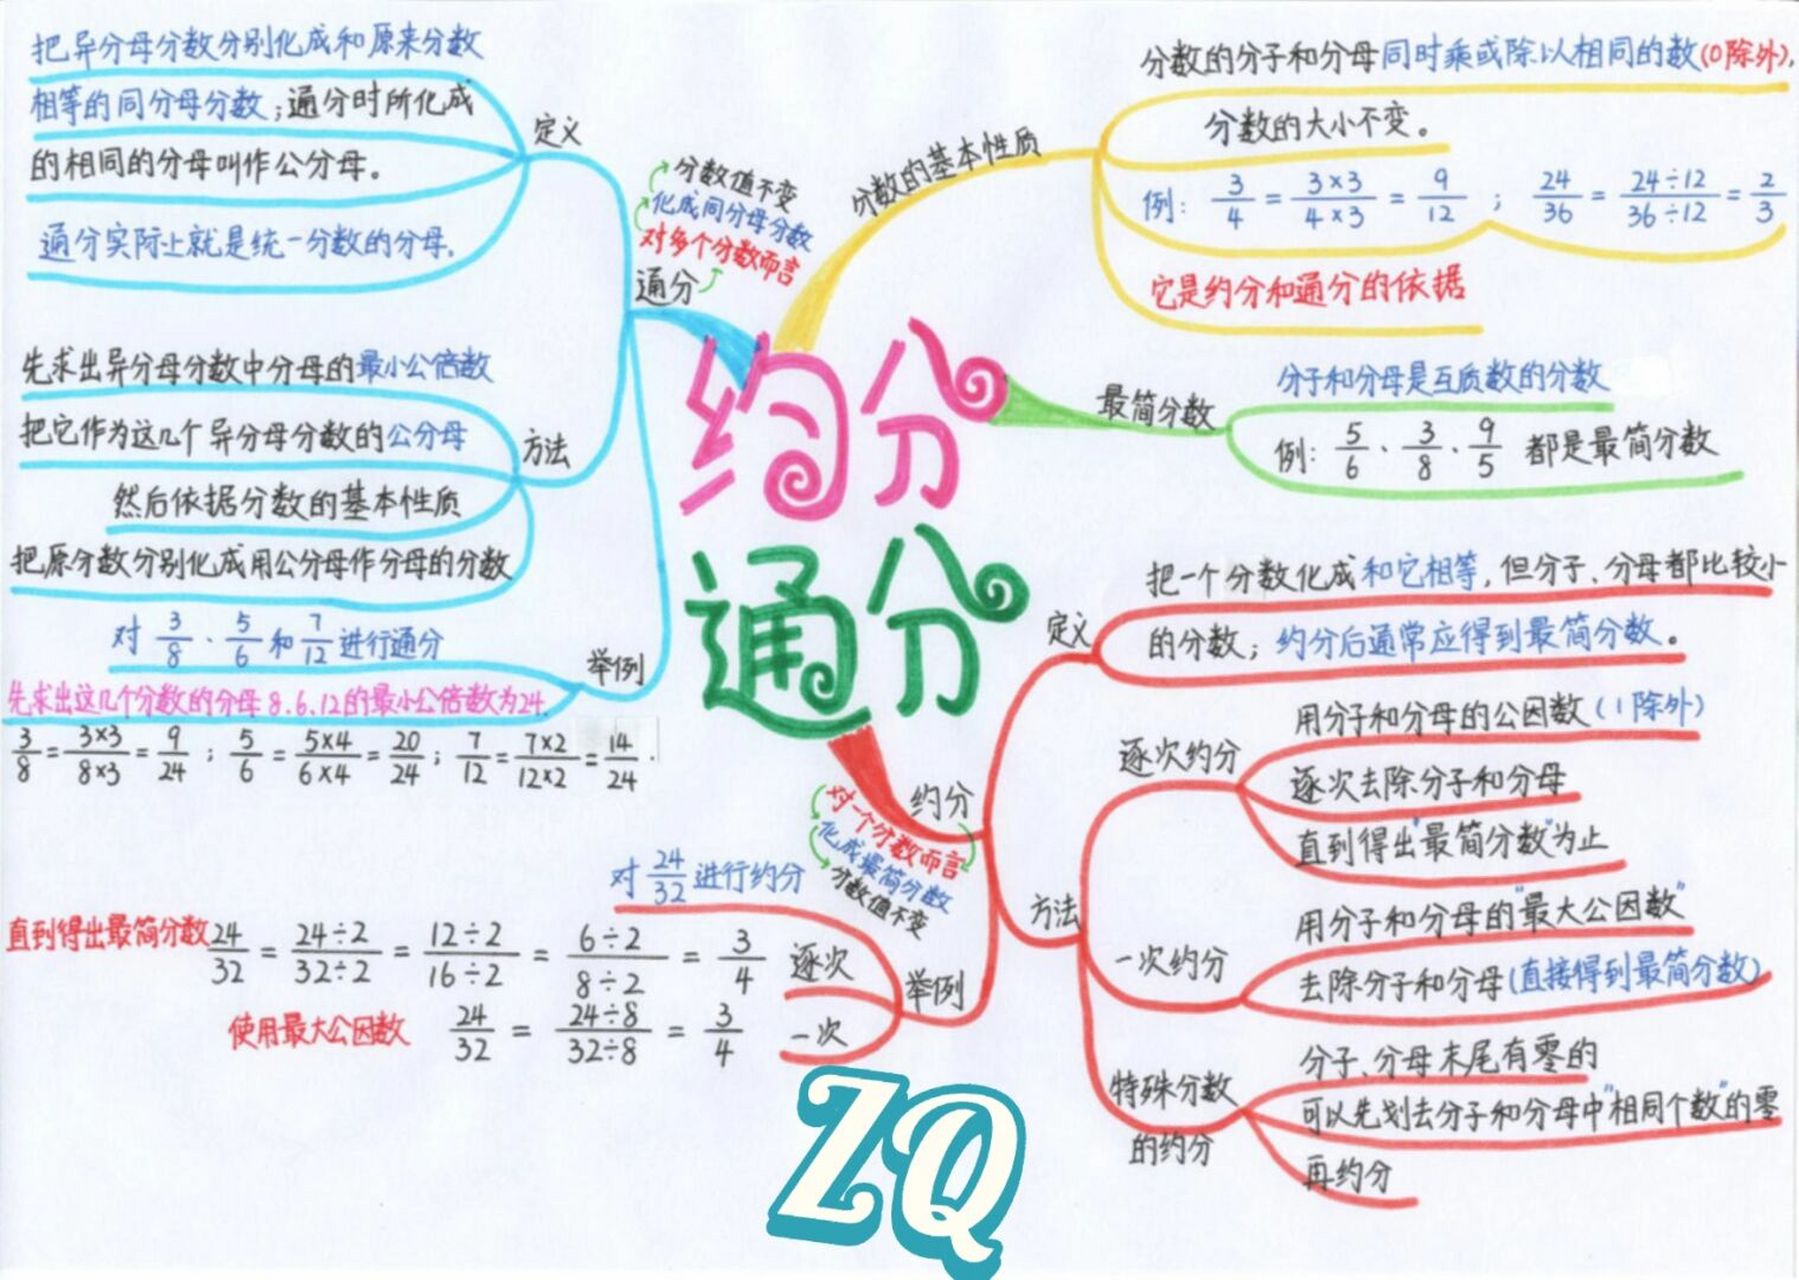 把异分母分数分别化成和原来分数
相等的同分母分数;通分时所化成
的相同的分母叫作公分母。
通分实际上就是统一分数的分母.
定义
先求出异分母分数中分母的最小公倍数
把它作为这几个异分母分数的公分母
然后依据分数的基本性质
把原分数分别化成用公分母作分母的分数
方法
对 3/8 · 5/6 和 7/12 进行通分
举例
先求出这几个分数的分母8.6.12的最小公倍数为24.
3/8 = 3×3/8×3 = 9/24 ; 5/6 = 5×4/6×4 = 20/24 ; 7/12 = 7×2/12×2 = 14/24 .
分数值不变
化成同分母分数
对多个分数而言
通分
约分
通分
分数的基本性质
分数的分子和分母同时乘或除以相同的数(0除外),
分数的大小不变。
例: 3/4 = 3×3/4×3 = 9/12 ; 24/36 = 24÷12/36÷12 = 2/3
它是约分和通分的依据
最简分数
分子和分母是互质数的分数
例: 5/6 · 3/8 · 9/5 都是最简分数
约分
对一个分数而言
化成最简分数
分数值不变
定义
把一个分数化成和它相等,但分子、分母都比较小
的分数;约分后通常应得到最简分数。
方法
逐次约分
用分子和分母的公因数(1除外)
逐次去除分子和分母
直到得出"最简分数"为止
一次约分
用分子和分母的"最大公因数"
去除分子和分母(直接得到最简分数)
特殊分数
的约分
分子、分母末尾有零的
可以先划去分子和分母中"相同个数"的零
再约分
举例
对 24/32 进行约分
逐次
直到得出最简分数 24/32 = 24÷2/32÷2 = 12÷2/16÷2 = 6÷2/8÷2 = 3/4
一次
使用最大公因数 24/32 = 24÷8/32÷8 = 3/4
ZQ